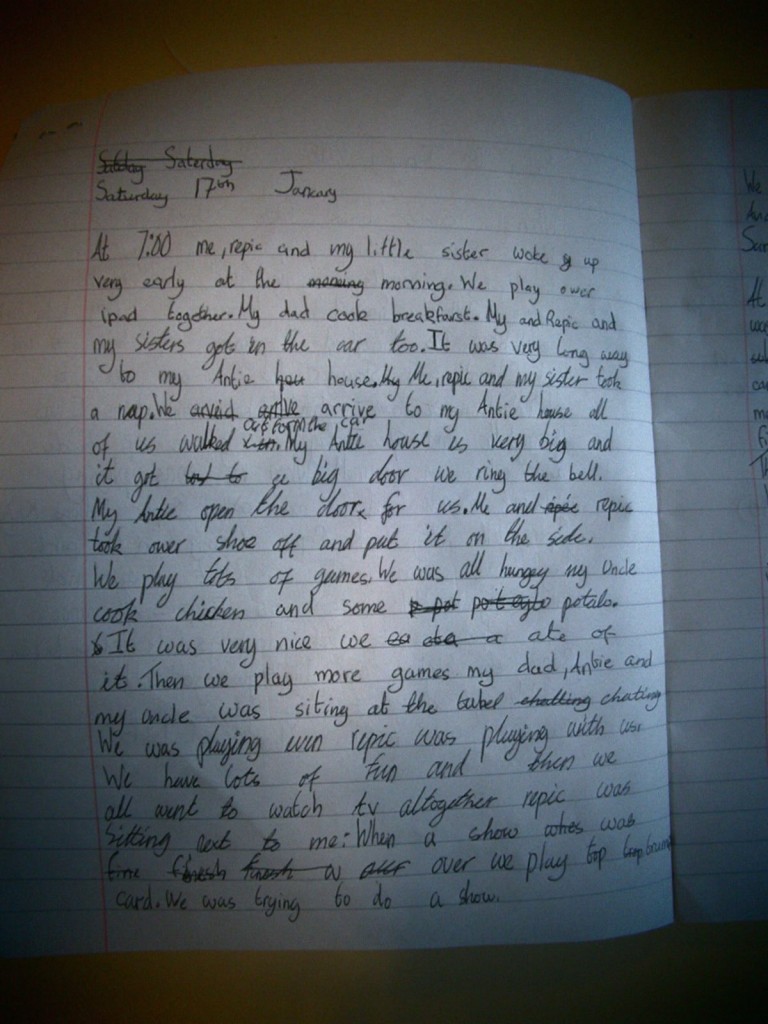 Saturday Saterday
Saturday 17th January
At 7:00 me, repic and my little sister woke up
very early at the morning. We play ower
ipad together. My dad cook breakfarst. My and Repic and
my sisters got in the car too. It was very long way
to my Antie hou house. My Me, repic and my sister took
a nap. We arvid arrive to my Antie house all
out form the car
of us walked. My Antie house is very big and
it got big door we ring the bell.
My Antie open the door for us. Me and repic repic
took ower shoe off and put it on the side.
We play lots of games. We was all hungey my Uncle
cook chicken and some potato.
It was very nice we ea a ate of
it. Then we play more games my dad, Antie and
my uncle was siting at the tabel chatting chating
We was playing even repic was playing with us.
We have lots of fun and then we
all went to watch tv altogether repic was
Sitting next to me. When a show was
fine finesh a over we play top
card. We was trying to do a show.
We
At